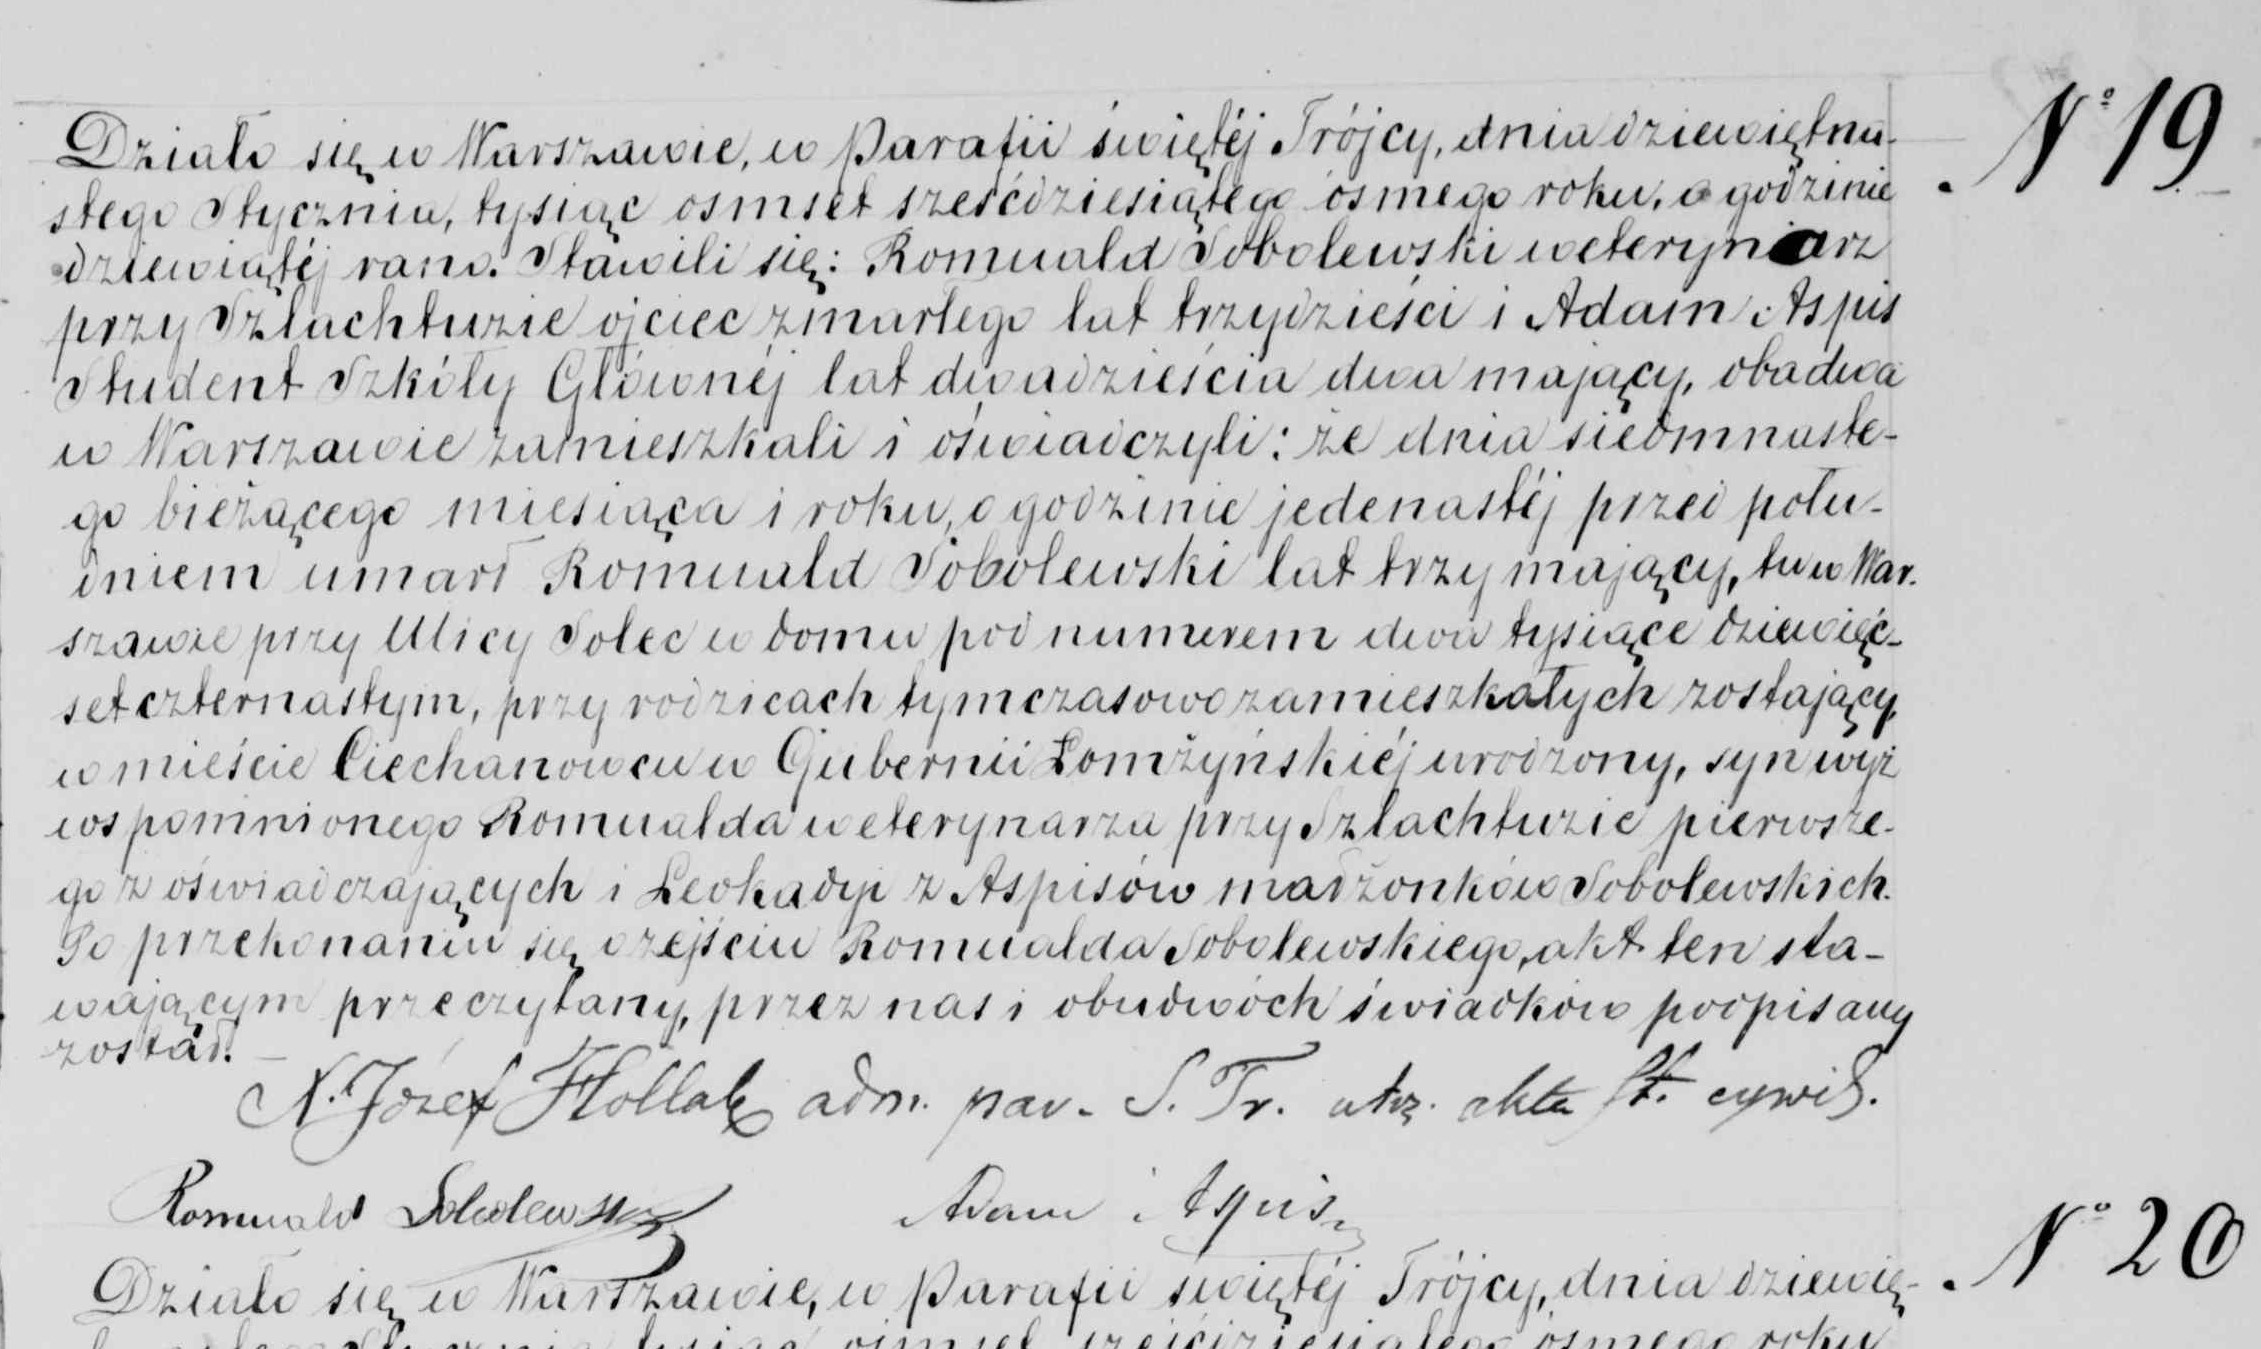 Działo się w Warszawie, w Parafii świętéj Trójcy, dnia dziewiętna- N° 19
stego Stycznia, tysiąc osmset sześćdziesiątego ósmego roku, o godzinie
dziewiątéj rano. Stawili się: Romuald Sobolewski weterynarz
przy Szlachtuzie ojciec zmarłego lat trzydzieści i Adam Aspis
Student Szkóły Głównéj lat dwadzieścia dwa mający, obadwa
w Warszawie zamieszkali i oświadczyli: że dnia siedmnaste-
go bieżącego miesiąca i roku, o godzinie jedenastéj przed połu-
dniem umarł Romuald Sobolewski lat trzy mający, tu w War-
szawie przy Ulicy Solec w domu pod numerem dwa tysiące dziewięć-
set czternastym, przy rodzicach tymczasowo zamieszkałych zostający,
w mieście Ciechanowcu w Gubernii Łomżyńskiéj urodzony, syn wyż
wspomnionego Romualda weterynarza przy Szlachtuzie pierwsze-
go z oświadczających i Leokadyi z Aspisów małżonków Sobolewskich.
Po przekonaniu się o zejściu Romualda Sobolewskiego, akt ten sta-
wającym przeczytany, przez nas i obudwóch świadków podpisany
został. —
X. Józef Hollak adm. par. S. Tr. utrz. akta St. cywil.
Romuald Sobolewski Adam Aspis
Działo się w Warszawie, w Parafii świętéj Trójcy, dnia dziewię- N° 20
Stycznia tysiąc ośmset sześćdziesiątego ósmego roku